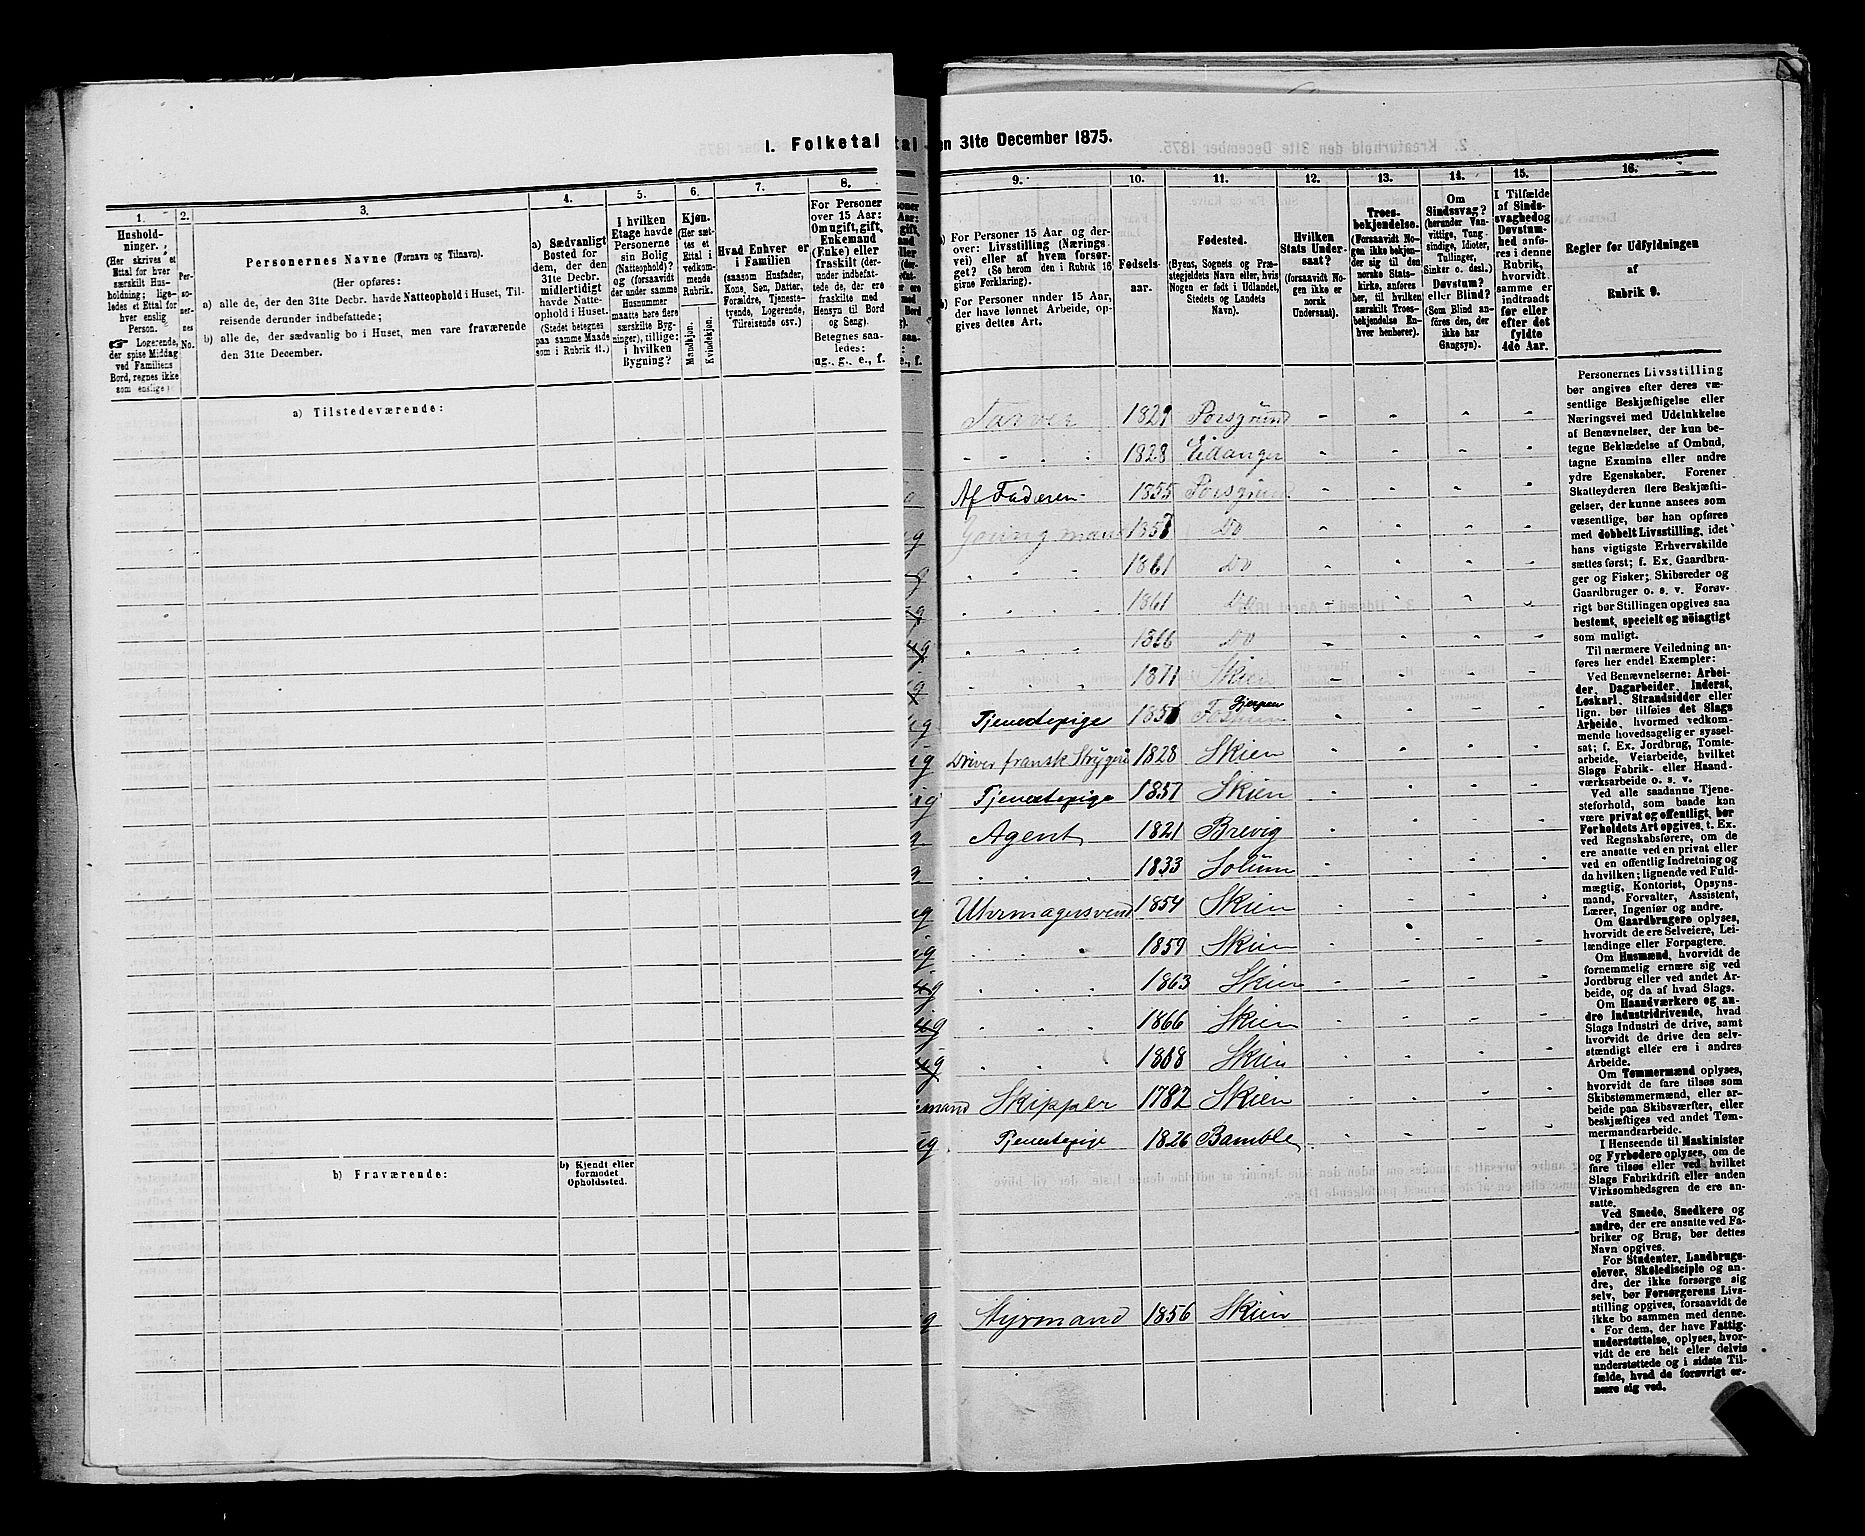 1. Folketal
tal
en 31te December 1875.
1.
2.
3.
4.
5.
6.
7.
8.
Hushold-
ninger.
(Her skrives et
Ettal for hver
særskilt Hus-
holdning; lige-
ledes et Ettal for
hver enslig
Person.
☞ Logerende,
der spise Middag
ved Familiens
Bord, regnes ikke
som enslige)
Per-
so-
ner-
nes
No.
Personernes Navne (Fornavn og Tilnavn).
(Her opføres:
a) alle de, der den 31te Decbr. havde Natteophold i Huset, Til-
reisende derunder indbefattede;
b) alle de, der sædvanlig bo i Huset, men vare fraværende
den 31te December.
a) Sædvanligt
Bosted for
dem, der den
31te Decbr.
midlertidigt
havde Natte-
ophold i Huset.
(Stedet betegnes
paa samme Maade
som i Rubrik 11.)
I hvilken
Etage havde
Personerne
sin Bolig
(Natteophold)?
og (forsaavidt
der under samme
Husnummer
maatte høre flere
særskilte Byg-
ninger), tillige:
i hvilken
Bygning?
Kjøn.
(Her sæt-
tes et
Ettal i
vedkom-
mende
Rubrik.
Mandkjøn.
Kvindekjøn.
Hvad Enhver er
i Familien
(saasom Husfader,
Kone, Søn, Datter,
Forældre, Tjeneste-
tyende, Logerende,
Tilreisende osv.)
For Personer
over 15 Aar:
Om ugift, gift,
Enkemand
(Enke) eller
fraskilt (der-
under indbefat-
tede de, der ere
fraskilte med
Hensyn til Bord
og Seng).
Betegnes saa-
ledes:
ug., g., e., f.
a) Tilstedeværende:
b) Fraværende:
b) Kjendt eller
formodet
Opholdssted.
9.
10.
11.
12.
13.
14.
15.
16.
a) For Personer 15 Aar og der-
over: Livsstilling (Nærings-
vei) eller af hvem forsør-
get? (Se herom den i Rubrik 16
givne Forklaring).
b) For Personer under 15 Aar,
der have lønnet Arbeide, op-
gives dettes Art.
Fødsels-
aar.
Fødested.
(Byens, Sognets og Præ-
stegjeldets Navn eller, hvis
Nogen er født i Udlandet,
Stedets og Landets
Navn).
Hvilken
Stats Under-
saat?
(forsaavidt No-
gen ikke er
norsk
Undersaat).
Troes-
bekjendelse.
(Forsaavidt No-
gen ikke bekjen-
der sig til den
norske Stats-
kirke, anføres
her, til hvilken
særskilt Troes-
bekjendelse En-
hver henhører).
Om
Sindssvag?
(herunder Van-
vittige, Tung-
sindige, Idioter,
Tullinger,
Sinker o. desl.)
Døvstum?
eller Blind?
(Som Blind an-
føres den, der
ikke har
Gangsyn).
I Tilfælde
af Sinds-
svaghed og
Døvstum-
hed anfø-
res i denne
Rubrik,
hvorvidt
samme er
indtraadt
før eller
efter det
fyldte
4de Aar.
Regler for Udfyldningen
af
Rubrik 9.
Farver 1829 Porsgrund
1828 Eidanger
Af Faderen 1855 Porsgrund
ug 1857 Do
1861 Do
1861 Do
1866 Do
1871 Skien
ug Tjenestepige Gjerpen
ug Driver fransk Strygeri 1828 Skien
ug Tjenestepige 1857 Skien
g Agent 1821 Brevig
g 1833 Solum
ug Uhrmagersvend 1854 Skien
ug 1859 Skien
ug 1863 Skien
ug 1866 Skien
ug 1868 Skien
mand Skipper 1782 Skien
ug Tjenestepige 1826 Bamble
g Styrmand 1856 Skien
Personernes Livsstilling
bør angives efter deres væ-
sentlige Beskjæftigelse eller
Næringsvei med Udelukkelse
af Benævnelser, der kun be-
tegne Beklædelse af Ombud,
tagne Examina eller andre
ydre Egenskaber. Forener
Skatteyderen flere Beskjæfti-
gelser, der kunne ansees som
væsentlige, bør han opføres
med dobbelt Livsstilling, idet
hans vigtigste Erhvervskilde
sættes først; f. Ex. Gaardbru-
ger og Fisker; Skibsreder og
Gaardbruger o. s. v. Forøv-
rigt bør Stillingen opgives saa
bestemt, specielt og nøiagtigt
som muligt.
Til nærmere Veiledning an-
føres her endel Exempler:
Ved Benævnelserne: Arbei-
der, Dagarbeider, Inderst,
Løskarl, Strandsidder eller
lign. bør tilføies det Slags
Arbeide, hvormed vedkom-
mende hovedsagelig er syssel-
sat; f. Ex. Jordbrug, Tomte-
arbeide, Veiarbeide, hvilket
Slags Fabrik- eller Haand-
værksarbeide o. s. v.
Ved alle saadanne Tjene-
steforhold, som baade kan
være privat og offentligt, bør
Forholdets Art opgives, t. Ex.
ved Regnskabsførere, om de
ere ansatte ved en privat eller
ved en offentlig Indretning og
da hvilken; lignende ved Fuld-
mægtig, Kontorist, Opsyns-
mand, Forvalter, Assistent,
Lærer, Ingeniør og andre.
Om Gaardbrugere oplyses,
hvorvidt de ere Selveiere, Lei-
lændinge eller Forpagtere.
Om Husmænd, hvorvidt de
fornemmelig ernære sig ved
Jordbrug eller ved andet Ar-
beide, og da af hvad Slags.
Om Haandværkere og an-
dre Industridrivende, hvad
Slags Industri de drive, samt
hvorvidt de drive den selv-
stændigt eller ere i andres
Arbeide.
Om Tømmermænd oplyses,
hvorvidt de fare tilsøs som
Skibstømmermænd, eller ar-
beide paa Skibsværfter, eller
beskjæftiges ved andet Tøm-
mermandsarbeide.
I Henseende til Maskinister
og Fyrbødere oplyses, om de
fare tilsøs eller ved hvilket
Slags Fabrikdrift eller anden
Virksomhedsgren de ere an-
satte.
Ved Smede, Snedkere og
andre, der ere ansatte ved Fa-
briker og Brug, bør dettes
Navn opgives.
For Studenter, Landbrugs-
elever, Skoledisciple og an-
dre, der ikke forsørge sig
selv, bør Forsørgerens Livs-
stilling opgives, forsaavidt de
ikke bo sammen med denne.
For dem, der have Fattig-
understøttelse, oplyses, hvor-
vidt de ere helt eller delvis
understøttede og i sidste Til-
fælde, hvad de forøvrigt er-
nære sig ved.